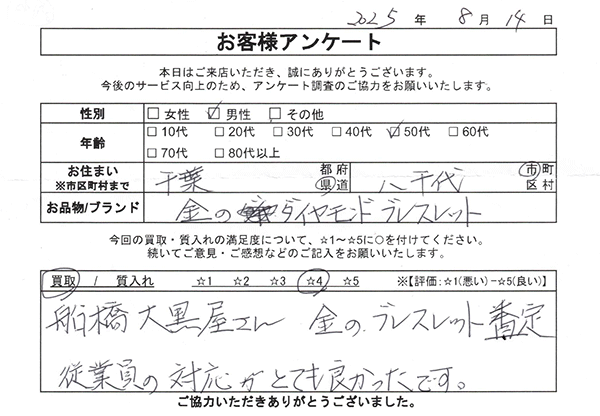 2025 年 8 月 14 日
お客様アンケート
本日はご来店いただき、誠にありがとうございます。
今後のサービス向上のため、アンケート調査のご協力をお願いいたします。
性別 □女性 ☑男性 □その他
年齢 □10代 □20代 □30代 □40代 ☑50代 □60代
□70代 □80代以上
お住まい ※市区町村まで 千葉 都府県道 八千代 市町区村
お品物/ブランド 金の ダイヤモンド ブレスレット
今回の買取・質入れの満足度について、☆1～☆5に○を付けてください。
続いてご意見・ご感想などのご記入をお願いいたします。
買取 / 質入れ ☆1 ☆2 ☆3 ☆4 ☆5 ※【評価:☆1(悪い)－☆5(良い)】
船橋 大黒屋さん 金の、ブレスレット 査定
従業員の対応がとても良かったです。
ご協力いただきありがとうございました。